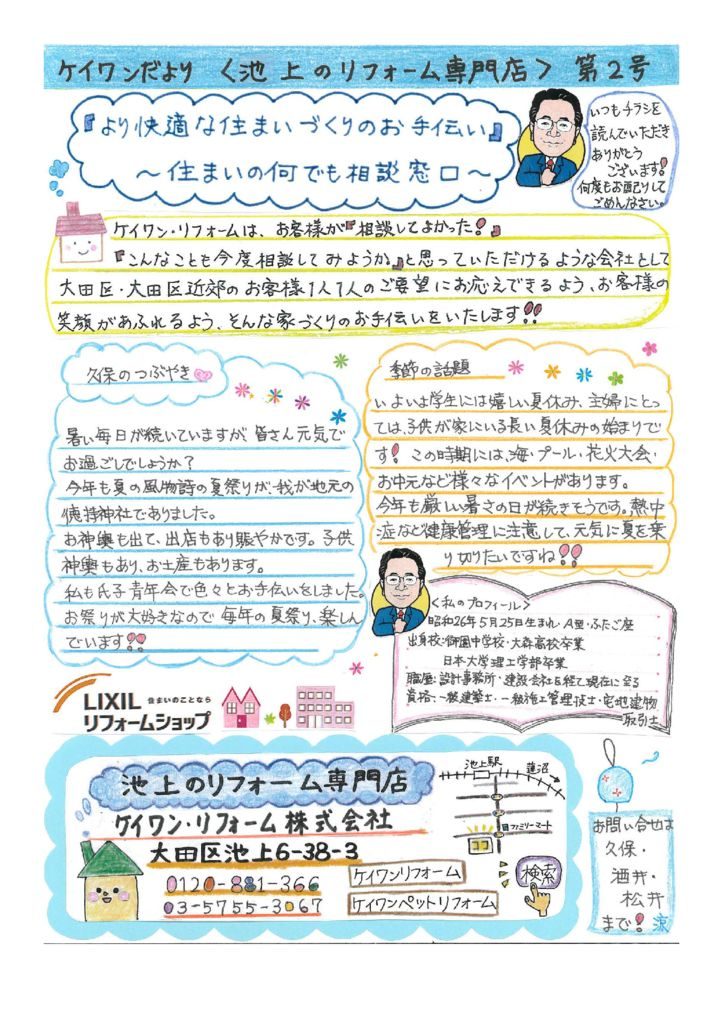 ケイワンだより 〈池上のリフォーム専門店〉 第2号
『より快適な住まいづくりのお手伝い』
～住まいの何でも相談窓口～
いつもチラシを
読んでいただき
ありがとう
ございます!
何度もお配りして
ごめんなさい。
ケイワン・リフォームは、お客様が『相談してよかった!』
『こんなことも今度相談してみようか』と思っていただけるような会社として
大田区・大田区近郊のお客様1人1人のご要望にお応えできるよう、お客様の
笑顔があふれるよう、そんな家づくりのお手伝いをいたします!!
久保のつぶやき
暑い毎日が続いていますが、皆さん元気で
お過ごしでしょうか?
今年も夏の風物詩の夏祭りが、我が地元の
徳持神社でありました。
お神輿も出て、出店もあり賑やかです。子供
神輿もあり、お土産もあります。
私も氏子青年会で色々とお手伝いをしました。
お祭りが大好きなので毎年の夏祭り、楽しん
でいます!!
季節の話題
いよいよ学生には嬉しい夏休み、主婦にとっ
ては、子供が家にいる長い夏休みの始まりで
す! この時期には、海・プール・花火大会・
お中元など様々なイベントがあります。
今年も厳しい暑さの日が続きそうです。熱中
症など健康管理に注意して、元気に夏を乗
り切りたいですね!!
〈私のプロフィール〉
昭和26年5月25日生まれ・A型・ふたご座
出身校:御園中学校・大森高校卒業
日本大学理工学部卒業
職歴:設計事務所・建設会社を経て現在に至る
資格:一級建築士・一級施工管理技士・宅地建物
取引士
LIXIL 住まいのことなら
リフォームショップ
池上のリフォーム専門店
ケイワン・リフォーム株式会社
大田区池上6-38-3
0120-881-366
03-5755-3067
池上駅
蓮沼
ファミリーマート
ココ
ケイワンリフォーム
ケイワンペットリフォーム
検索
お問い合せは
久保・
酒井・
松井
まで!
涼